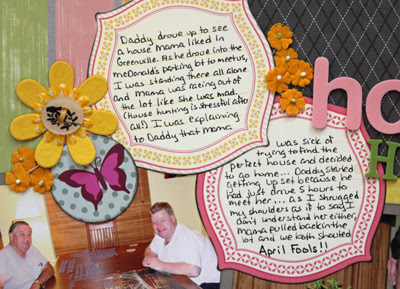 Daddy drove up to see
a house Mama liked in
Greenville. As he drove into the
McDonald's parking lot to meet us,
I was standing there all alone
and Mama was racing out of
the lot like she was mad.
(House hunting is stressful after
all!) I was explaining
to Daddy that Mama
was sick of
trying to find the
perfect house and decided
to go home... Daddy started
getting upset because he
had just drove 5 hours to
meet her... as I shrugged
my shoulders as if to say I
can't understand her either,
Mama pulled back in the
lot and we both shouted
April Fools!!
ho
H